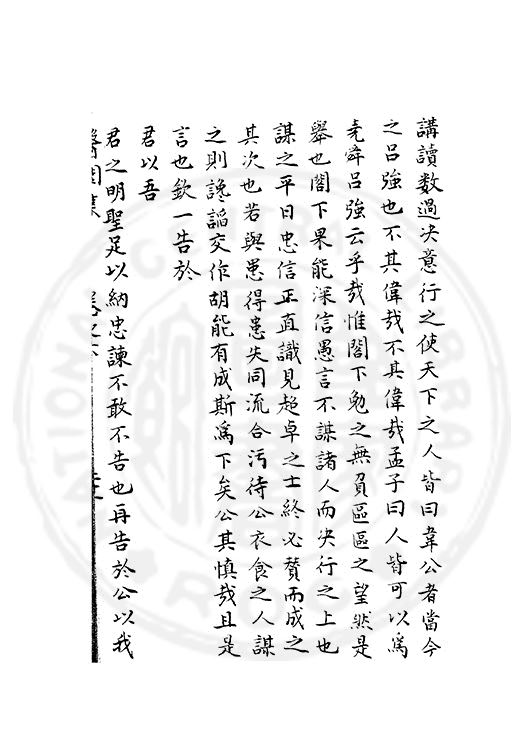 講讀数過决意行之使天下之人皆曰韋公者當今
之吕強也不其偉哉不其偉哉孟子曰人皆可以為
堯舜吕強云乎哉惟閤下勉之無負區區之望然是
舉也閤下果能深信愚言不謀諸人而决行之上也
謀之平日忠信正直識見超卓之士終必賛而成之
其次也若與患得患失同流合污待公衣食之人謀
之則讒謟交作胡能有成斯為下矣公其慎哉且是
言也欽一告於
君以吾
君之明聖足以納忠諫不敢不告也再告於公以我
醫閭集
卷之六